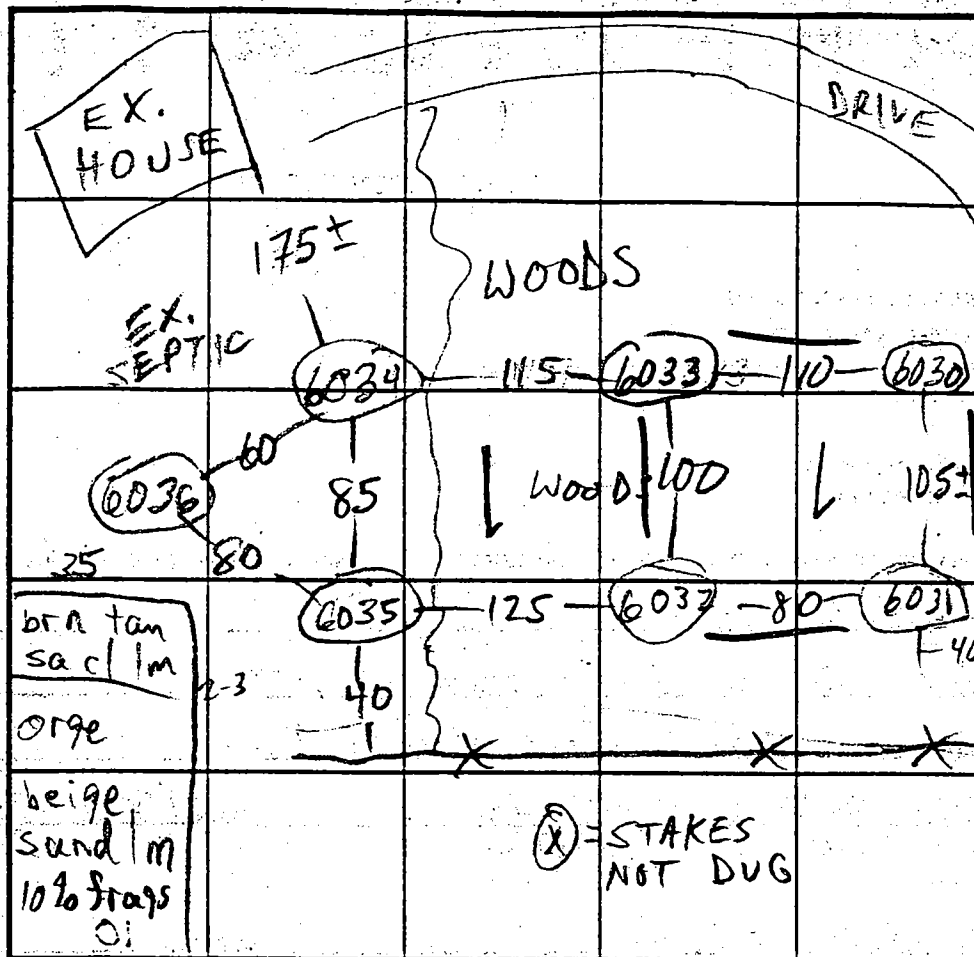 EX.
HOUSE
DRIVE
175±
WOODS
EX.
SEPTIC
6034
115
6033
110
6030
60
6036
85
WOODS
100
105±
35
80
6035
125
6032
80
6031
brn tan
sa cl lm
2-3
40
40
orge
beige
sand lm
10% frags
X = STAKES
NOT DUG